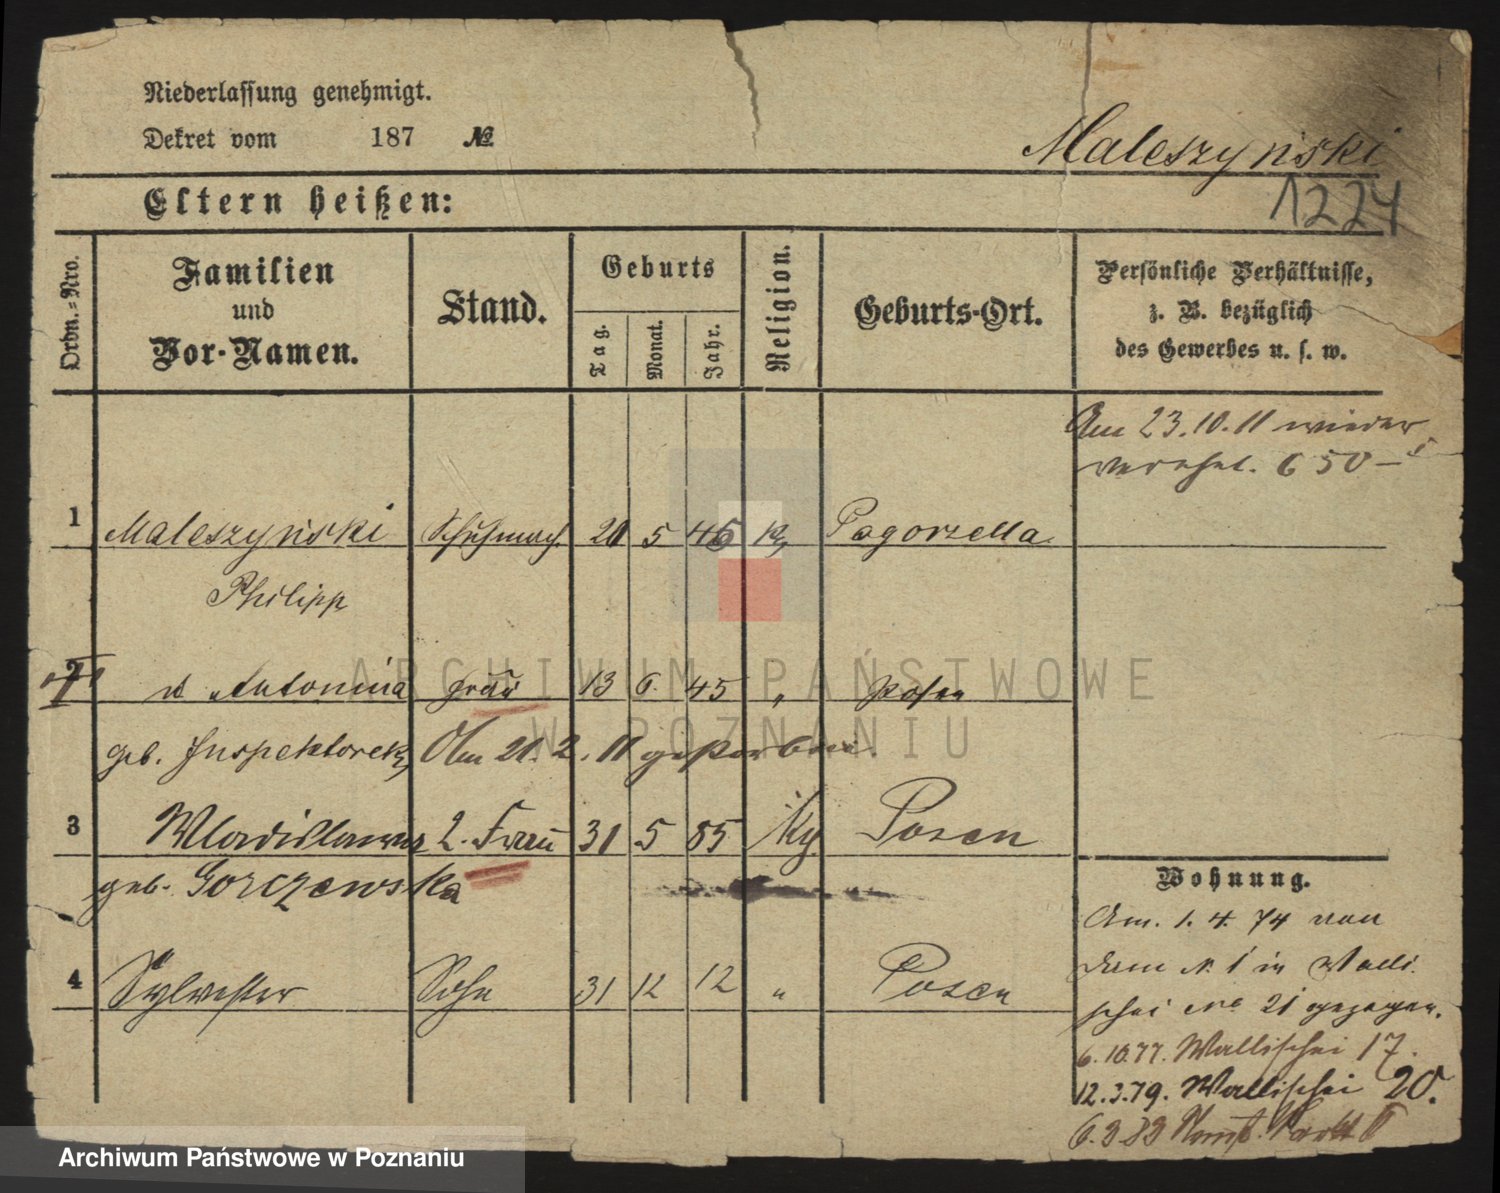 Niederlassung genehmigt.
Dekret vom 187 №
Maleszyński
1224
Eltern heißen:
Ordn.-Nro.
Familien
und
Vor-Namen.
Stand.
Geburts
Tag.
Monat.
Jahr.
Religion.
Geburts-Ort.
Persönliche Verhältnisse,
z. B. bezüglich
des Gewerbes u. s. w.
Am 23.10.11 wieder
verehel. 650
1 Maleszyński Schuhmach. 20 5 46 K Pogorzella
Philipp
2 Antonina Frau 13 6. 45 " Posen
geb. Inspektorek Am 21.2.11 gestorben.
3 Wladislawa 2. Frau 31 5 85 Posen
geb. Gorczewska
4 Sylvester Sohn 31 12 12 " Posen
Wohnung.
Am 1.4.74 von
in Walli-
schei No 21 gezogen.
6.10.77. Wallischei 17.
12.3.79. Wallischei 20.
ARCHIWUM PAŃSTWOWE
W POZNANIU
Archiwum Państwowe w Poznaniu